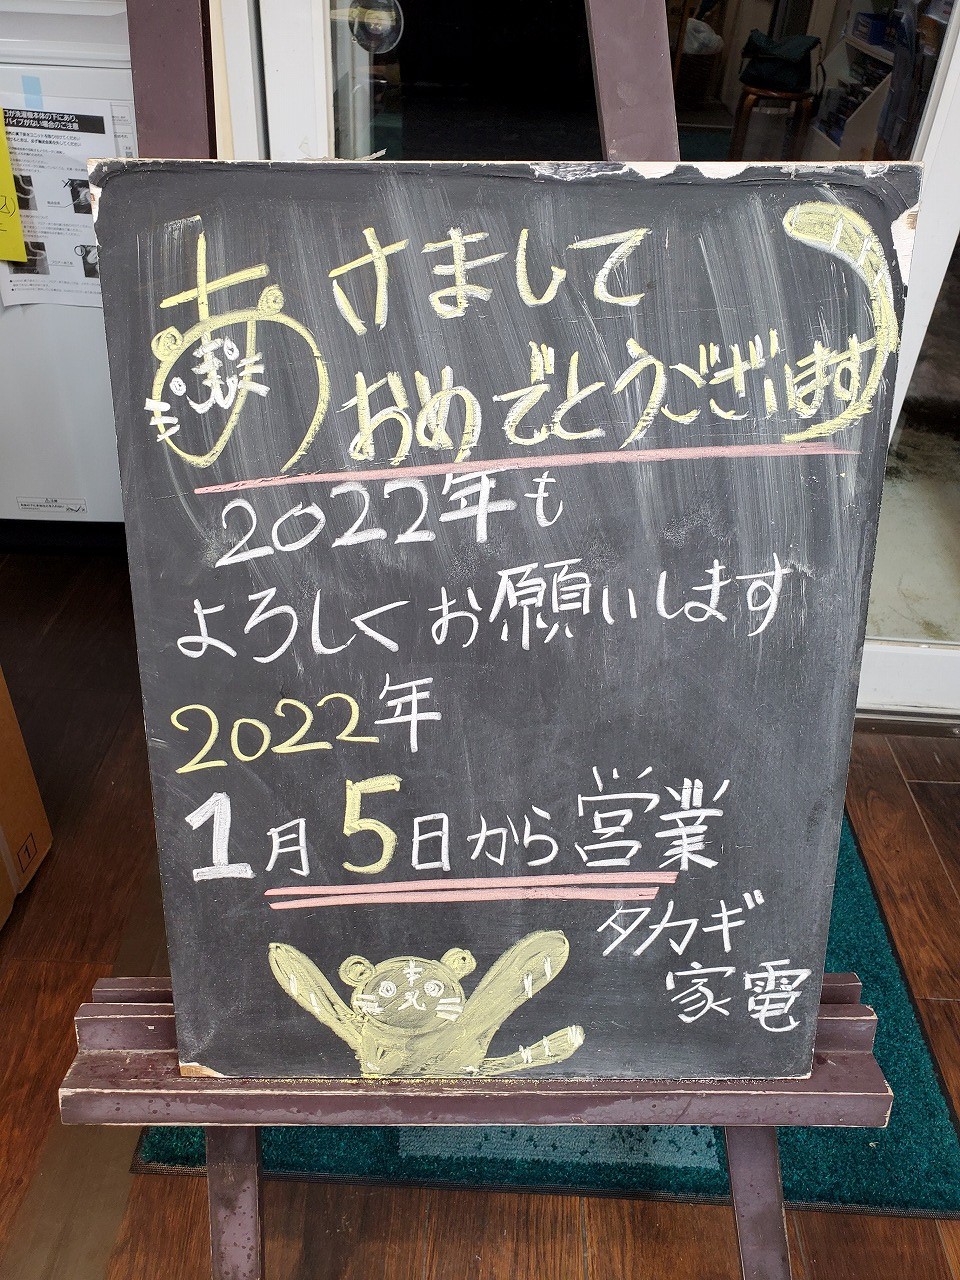 あけまして
おめでとうございます
2022年も
よろしくお願いします
2022年
1月5日から営業
タカギ
家電